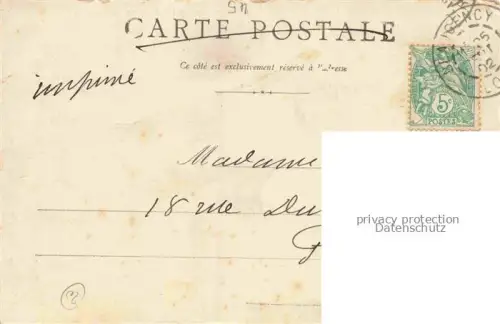 54
CARTE POSTALE
Ce côté est exclusivement réservé à l'adresse
imprimé
5c
POSTES
Madame
18 rue Du
privacy protection
Datenschutz